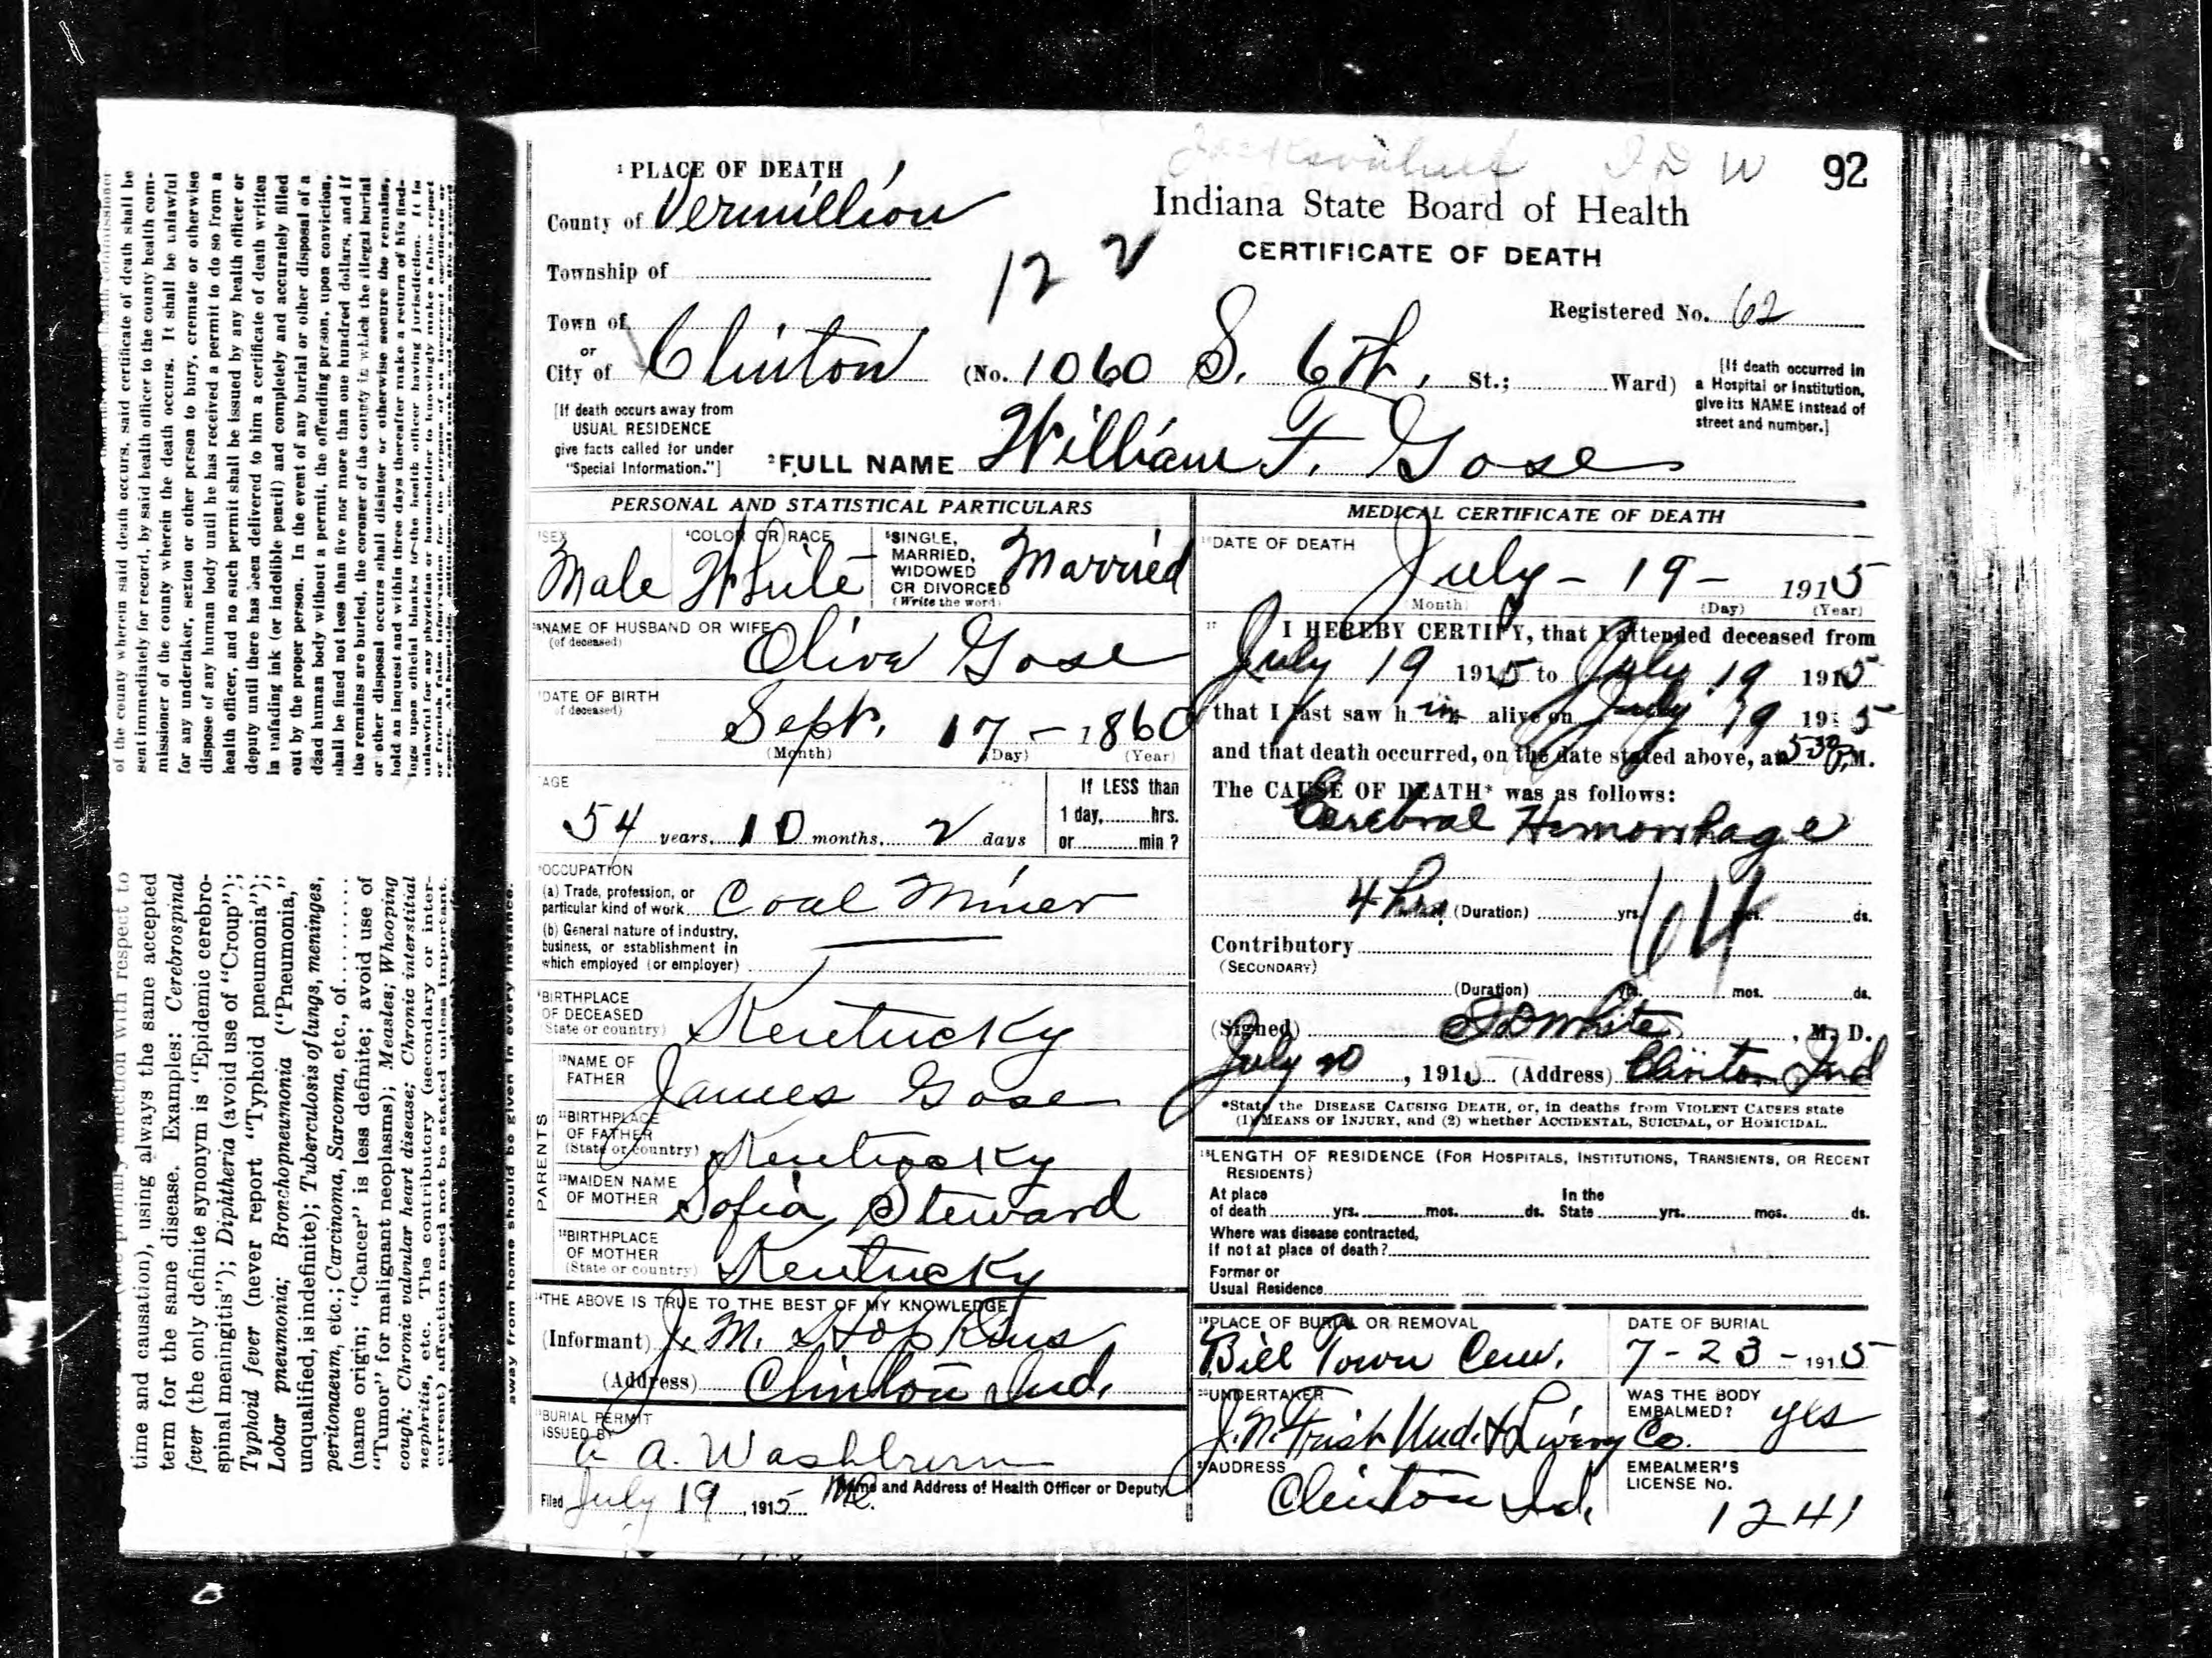 92
I D W
¹ PLACE OF DEATH
County of Vermillion
Indiana State Board of Health
CERTIFICATE OF DEATH
12 2
Township of
Registered No. 62
Town of
or
City of Clinton (No. 1060 S. 6th, St.; Ward)
[If death occurred in
a Hospital or Institution,
give its NAME instead of
street and number.]
[If death occurs away from
USUAL RESIDENCE
give facts called for under
"Special Information."]
²FULL NAME William F. Gose
PERSONAL AND STATISTICAL PARTICULARS
³SEX Male
⁴COLOR OR RACE White
⁵SINGLE,
MARRIED,
WIDOWED
OR DIVORCED
(Write the word) Married
NAME OF HUSBAND OR WIFE
(of deceased) Olive Gose
DATE OF BIRTH
(of deceased)
Sept. 17 - 1860
(Month) (Day) (Year)
AGE
54 years, 10 months, 2 days
If LESS than
1 day, hrs.
or min ?
OCCUPATION
(a) Trade, profession, or
particular kind of work Coal Miner
(b) General nature of industry,
business, or establishment in
which employed (or employer)
BIRTHPLACE
OF DECEASED
(State or country) Kentucky
PARENTS
¹⁰NAME OF
FATHER James Gose
¹¹BIRTHPLACE
OF FATHER
(State or country) Kentucky
¹²MAIDEN NAME
OF MOTHER Sofia Steward
¹³BIRTHPLACE
OF MOTHER
(State or country) Kentucky
¹⁴THE ABOVE IS TRUE TO THE BEST OF MY KNOWLEDGE
(Informant) J. M. Hopkins
(Address) Clinton Ind.
BURIAL PERMIT
ISSUED BY
A. Washburn
Filed July 19, 1915 Name and Address of Health Officer or Deputy
MEDICAL CERTIFICATE OF DEATH
¹⁶DATE OF DEATH
July - 19 - 1915
(Month) (Day) (Year)
¹⁷ I HEREBY CERTIFY, that I attended deceased from
July 19 1915 to July 19 1915
that I last saw him alive on July 19 1915
and that death occurred, on the date stated above, at 5 30 P.M.
The CAUSE OF DEATH* was as follows:
Cerebral Hemorrhage
4 hrs (Duration) yrs. mos. ds.
Contributory
(SECONDARY)
(Duration) yrs. mos. ds.
(Signed) I D White, M. D.
July 20, 1915 (Address) Clinton Ind
*State the DISEASE CAUSING DEATH, or, in deaths from VIOLENT CAUSES state
(1) MEANS OF INJURY, and (2) whether ACCIDENTAL, SUICIDAL, or HOMICIDAL.
¹⁸LENGTH OF RESIDENCE (FOR HOSPITALS, INSTITUTIONS, TRANSIENTS, OR RECENT
RESIDENTS)
At place
of death yrs. mos. ds.
In the
State yrs. mos. ds.
Where was disease contracted,
if not at place of death?
Former or
Usual Residence
¹⁹PLACE OF BURIAL OR REMOVAL
Bill Town Cem.
DATE OF BURIAL
7-23-1915
²⁰UNDERTAKER
J. N. Frist Und. & Livery Co.
WAS THE BODY
EMBALMED? yes
ADDRESS
Clinton Ind.
EMBALMER'S
LICENSE NO.
1241
of the county wherein said death occurs, said certificate of death shall be
sent immediately for record, by said health officer to the county health com-
missioner of the county wherein the death occurs. It shall be unlawful
for any undertaker, sexton or other person to bury, cremate or otherwise
dispose of any human body until he has received a permit to do so from a
health officer, and no such permit shall be issued by any health officer or
deputy until there has been delivered to him a certificate of death written
in unfading ink (or indelible pencil) and completely and accurately filled
out by the proper person. In the event of any burial or other disposal of a
dead human body without a permit, the offending person, upon conviction,
shall be fined not less than five nor more than one hundred dollars, and if
the remains are buried, the coroner of the county in which the illegal burial
or other disposal occurs shall disinter or otherwise secure the remains,
hold an inquest and within three days thereafter make a return of his find-
ings upon official blanks to the health officer having jurisdiction. It is
unlawful for any physician or householder to knowingly make a false report
or furnish false information for the purpose of an incorrect certificate or
time and causation), using always the same accepted
term for the same disease. Examples: Cerebrospinal
fever (the only definite synonym is "Epidemic cerebro-
spinal meningitis"); Diphtheria (avoid use of "Croup");
Typhoid fever (never report "Typhoid pneumonia");
Lobar pneumonia; Bronchopneumonia ("Pneumonia,"
unqualified, is indefinite); Tuberculosis of lungs, meninges,
peritonaeum, etc.; Carcinoma, Sarcoma, etc., of
(name origin; "Cancer" is less definite; avoid use of
"Tumor" for malignant neoplasms); Measles; Whooping
cough; Chronic valvular heart disease; Chronic interstitial
nephritis, etc. The contributory (secondary or inter-
current) affection need not be stated unless important.
away from home should be given in every instance.